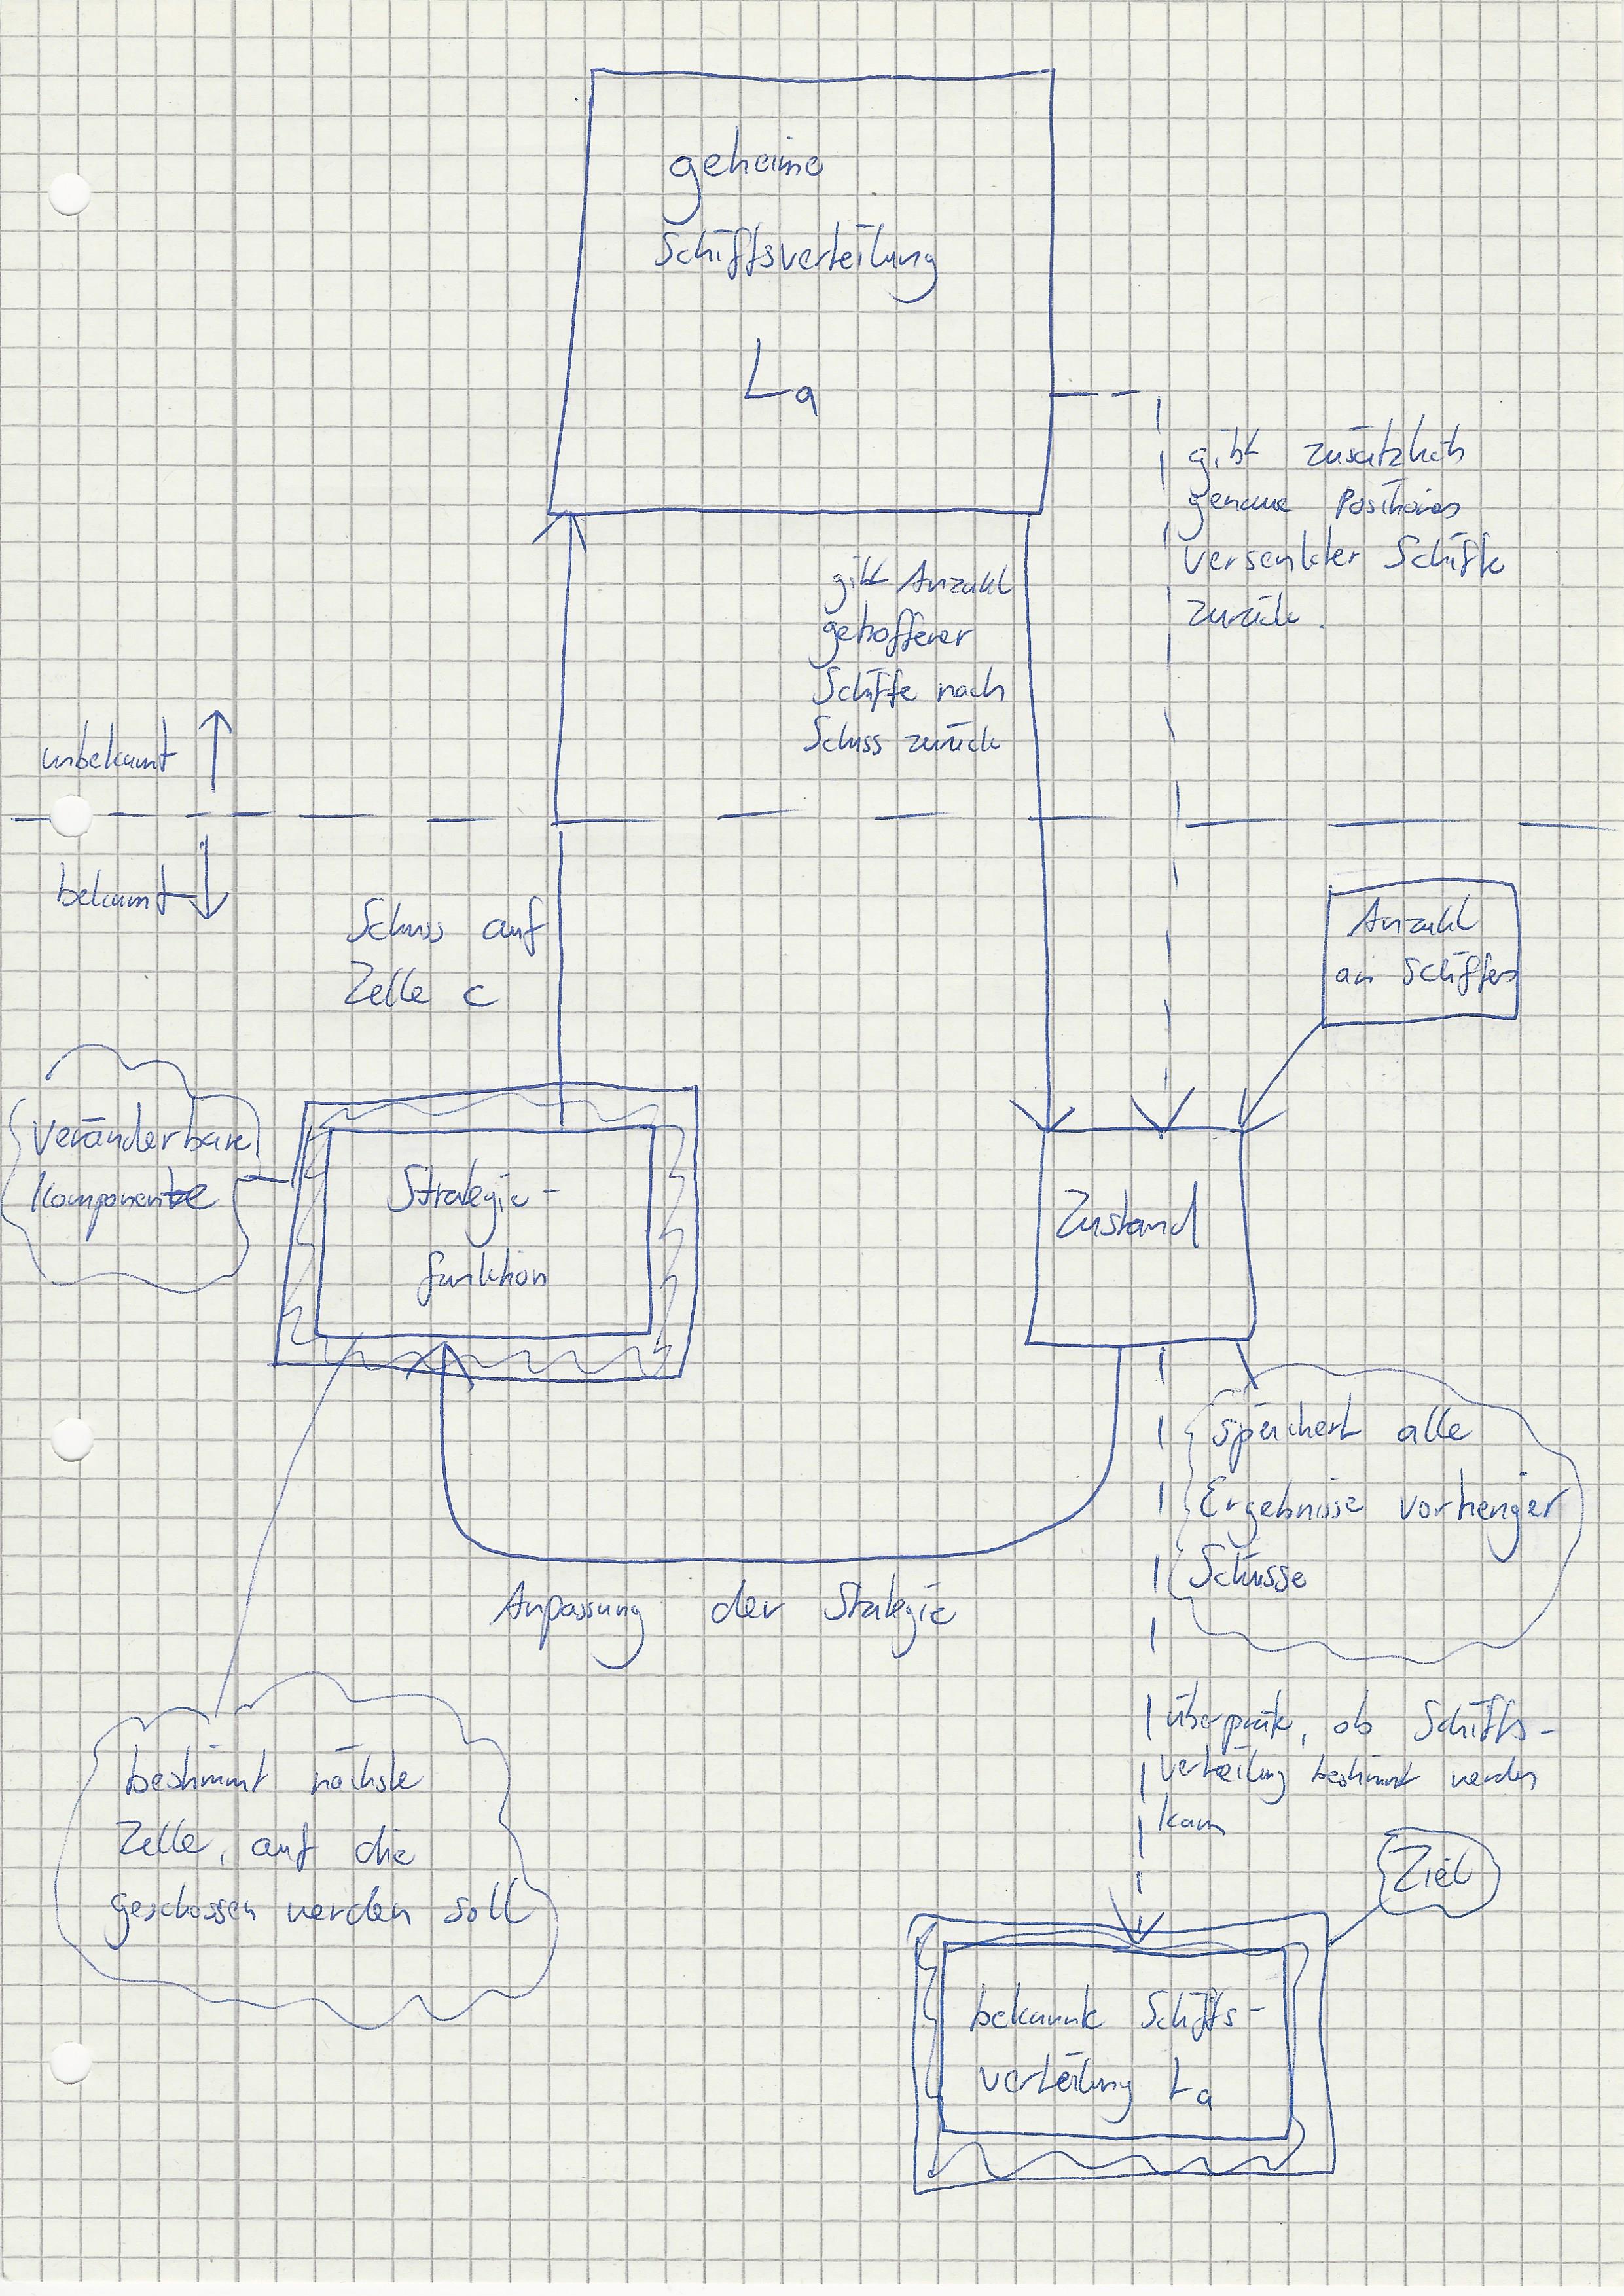 geheime
Schiffsverteilung
La
gibt zusätzlich
genaue Positionen
versenkter Schiffe
zurück.
gibt Anzahl
getroffener
Schiffe nach
Schuss zurück
unbekannt
bekannt
Schuss auf
Zelle c
Anzahl
an Schiffen
Veränderbare
Komponente
Strategie-
funktion
Zustand
speichert alle
Ergebnisse vorheriger
Schüsse
Anpassung der Stategie
überprüft, ob Schiffs-
verteilung bestimmt werden
kann
bestimmt nächste
Zelle, auf die
geschossen werden soll
Ziel
bekannte Schiffs-
verteilung La